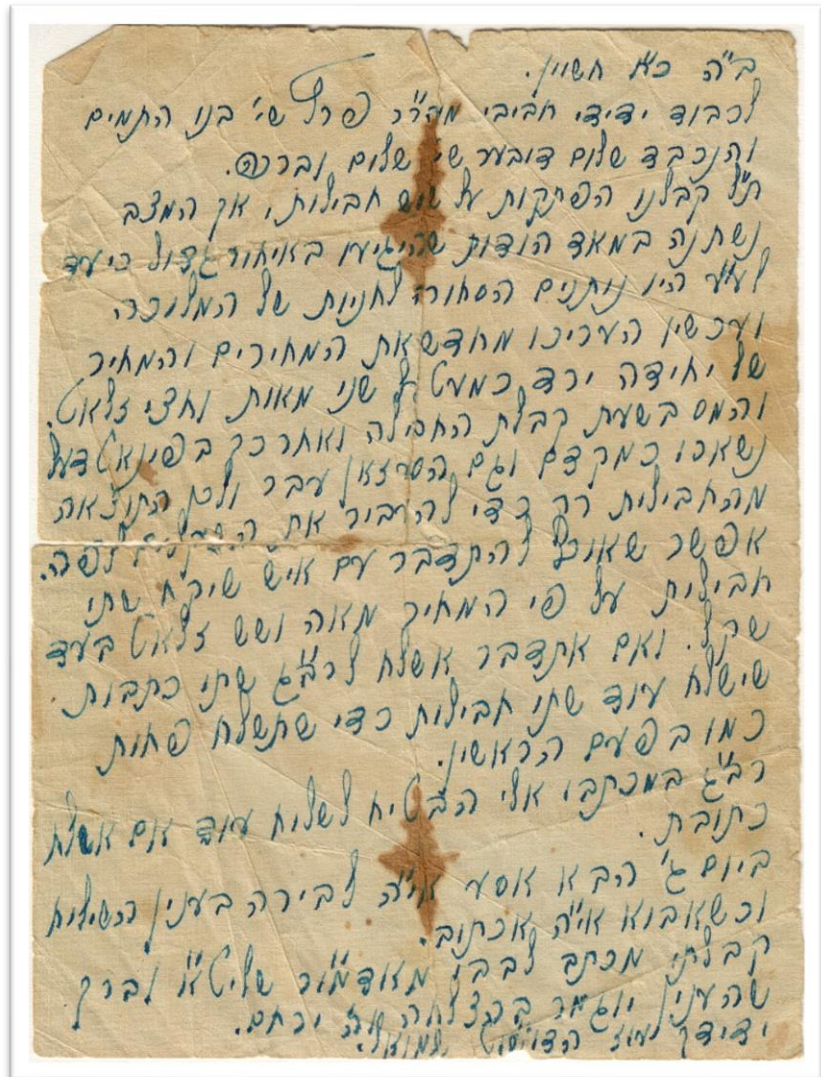 ב"ה כ"א חשון.
לכבוד ידידי חביבי מהר"ר פרץ שי' בנו התמים
והנכבד שלום דובער שי' שלום וברכה.
ת"ל קבלנו הפתקות על שש חבילות, אך המצב
נשתנה במאד הודות שהיגיעו באיחור גדול כי עד
לע"ע היו נותנים הסחורה לחניות של המלוכה
ועכשיו העריכו מחדש את המחירים והמחיר
של יחידה ירד כמעט על שני מאות וחצי זלאט.
והמס בשעת קבלת החבילה ואחר כך ב
נשארו כמקדם וגם עבר ולכן התוצאה
מהחבילות רק כדי את לפה.
אפשר שאוכל להתדבר עם איש שיקח שתי
חבילות על פי המחיר מאה ושש זלאט בעד
שקל. ואם אתדבר אשלח לרב"ג שתי כתבות
שישלח עוד שתי חבילות כדי שתשלח פחות
כמו בפעם הראשון.
רב"ג במכתבו אלי הבטיח לשלוח עוד אם אשלח
כתובת.
ביום ג' הבא אסע אי"ה לבירה בענין השילוח
וכשאבוא אי"ה אכתוב.
קבלתי מכתב לבבי מאדמו"ר שליט"א וברך
שהענין יוגמר בהצלחה ירחם.
ידידך